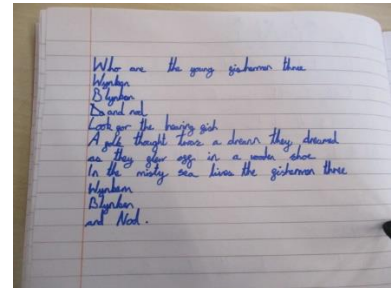 Who are the young gisherman three
Wynken
Blynken
D and nod
Look gor the hearing gish
A gole thought twas a dream they dreamed
as they glew ogg in a wooden shoe
In the misty sea lives the gisherman three
Wynken
Blynken
and Nod.